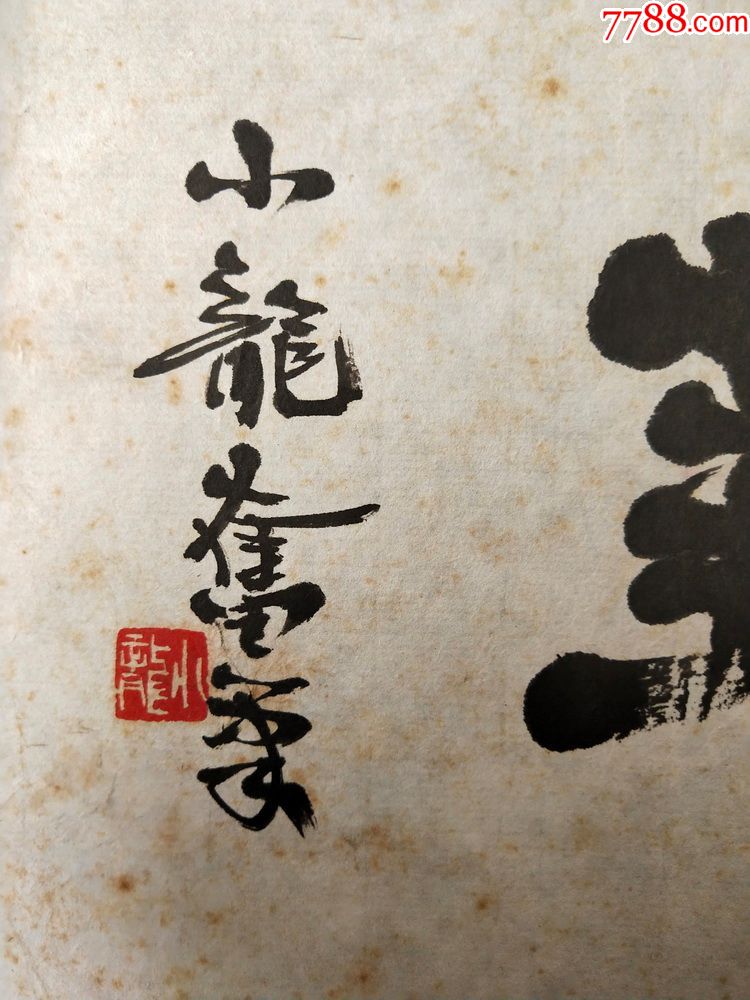 7788.com
小龍奮筆
小龍